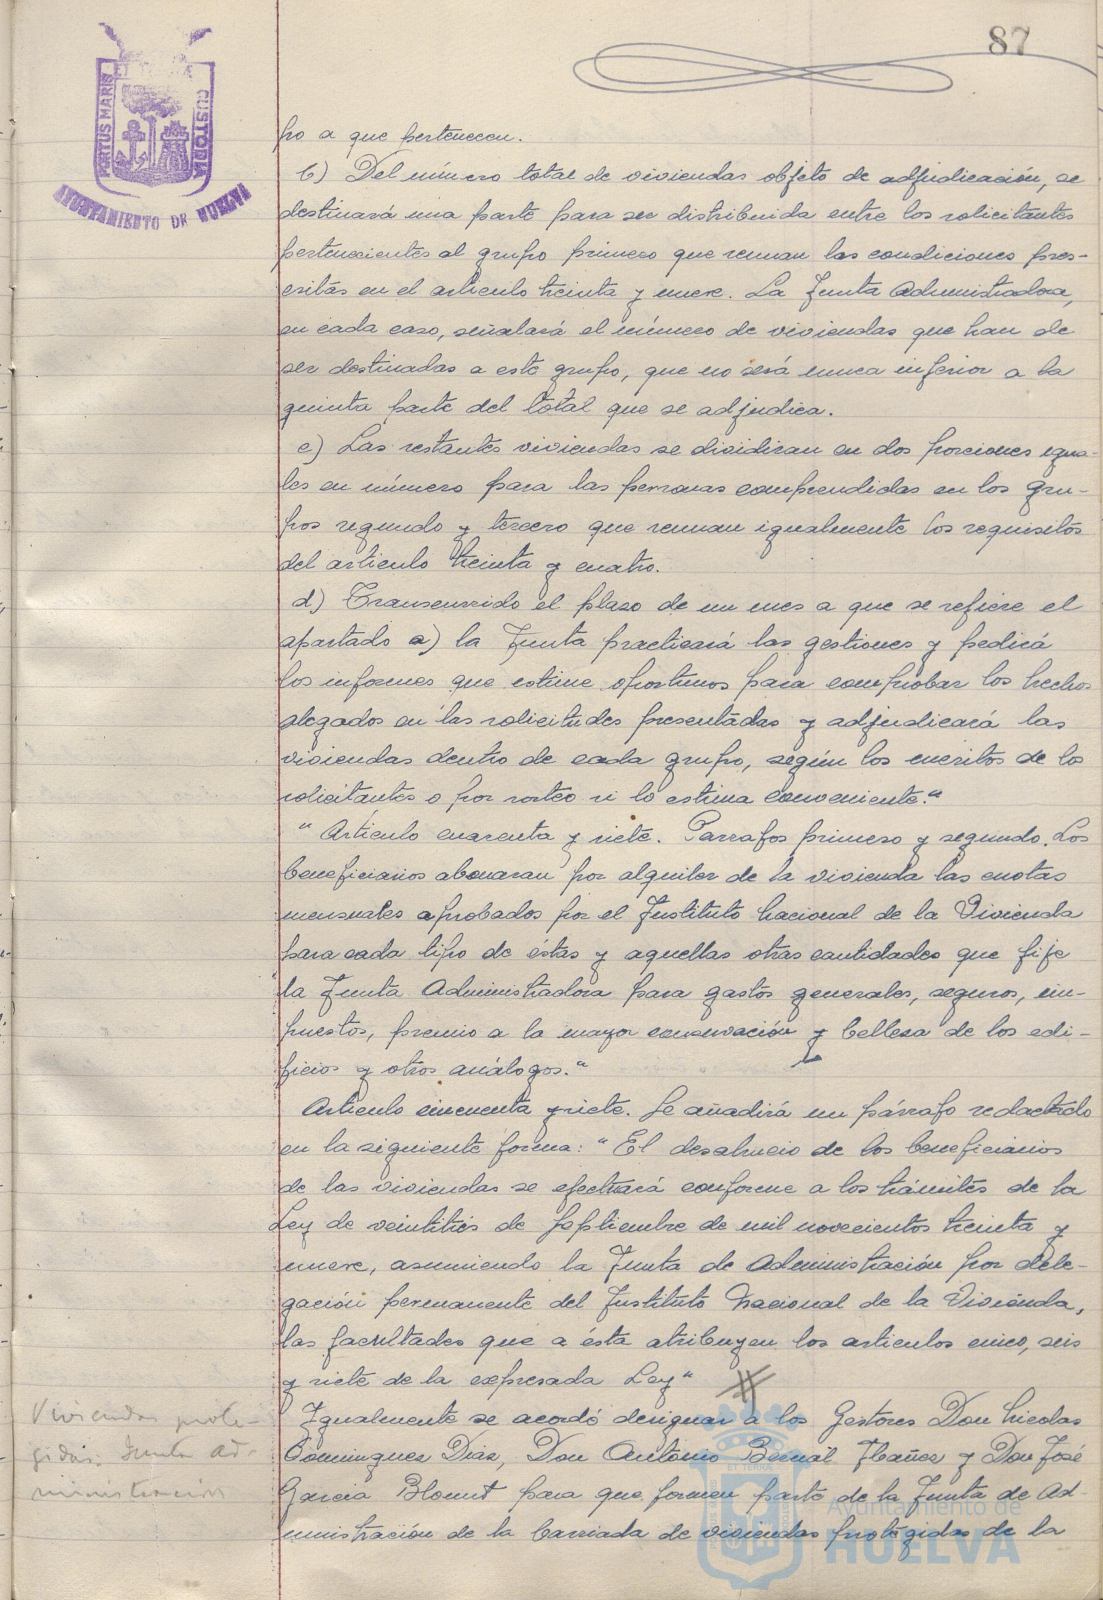 87
PORTUS MARIS ET TERRAE CUSTODIA
AYUNTAMIENTO DE HUELVA
po a que pertenecen.
b) Del número total de viviendas objeto de adjudicación, se
destinará una parte para ser distribuida entre los solicitantes
pertenecientes al grupo primero que reunan las condiciones pres-
critas en el articulo treinta y nueve. La Junta Administradora,
en cada caso, señalará el número de viviendas que han de
ser destinadas a este grupo, que no será nunca inferior a la
quinta parte del total que se adjudica.
c) Las restantes viviendas se dividiran en dos porciones igua-
les en número para las personas comprendidas en los gru-
pos segundo y tercero que reunan igualmente los requisitos
del articulo treinta y cuatro.
d) Transcurrido el plazo de un mes a que se refiere el
apartado a) la Junta practicará las gestiones y pedirá
los informes que estime oportunos para comprobar los hechos
alegados en las solicitudes presentadas y adjudicará las
viviendas dentro de cada grupo, según los meritos de los
solicitantes o por sorteo si lo estima conveniente."
" Artículo cuarenta y siete. Parrafos primero y segundo. Los
beneficiarios abonaran por alquiler de la vivienda las cuotas
mensuales aprobados por el Instituto Nacional de la Vivienda
para cada tipo de éstas y aquellas otras cantidades que fije
la Junta Administradora para gastos generales, seguros, im-
puestos, premio a la mayor conservación y belleza de los edi-
ficios y otros análogos."
Articulo cincuenta y siete. Se añadirá un párrafo redactado
en la siguiente forma: "El desahucio de los beneficiarios
de las viviendas se efectuará conforme a los trámites de la
Ley de veintitrés de Septiembre de mil novecientos treinta y
nueve, asumiendo la Junta de Administración por dele-
gación permanente del Instituto Nacional de la Vivienda,
las facultades que a ésta atribuyen los articulos cinco, seis
y siete de la expresada Ley"
Viviendas prote-
gidas. Junta Ad-
ministración
Igualmente se acordó designar a los Gestores Don Nicolas
Dominguez Diaz, Don Antonio Bernal Ibañez y Don José
Garcia Blount para que formen parte de la Junta de Ad-
ministración de la barriada de viviendas protegidas de la
Ayuntamiento de
HUELVA